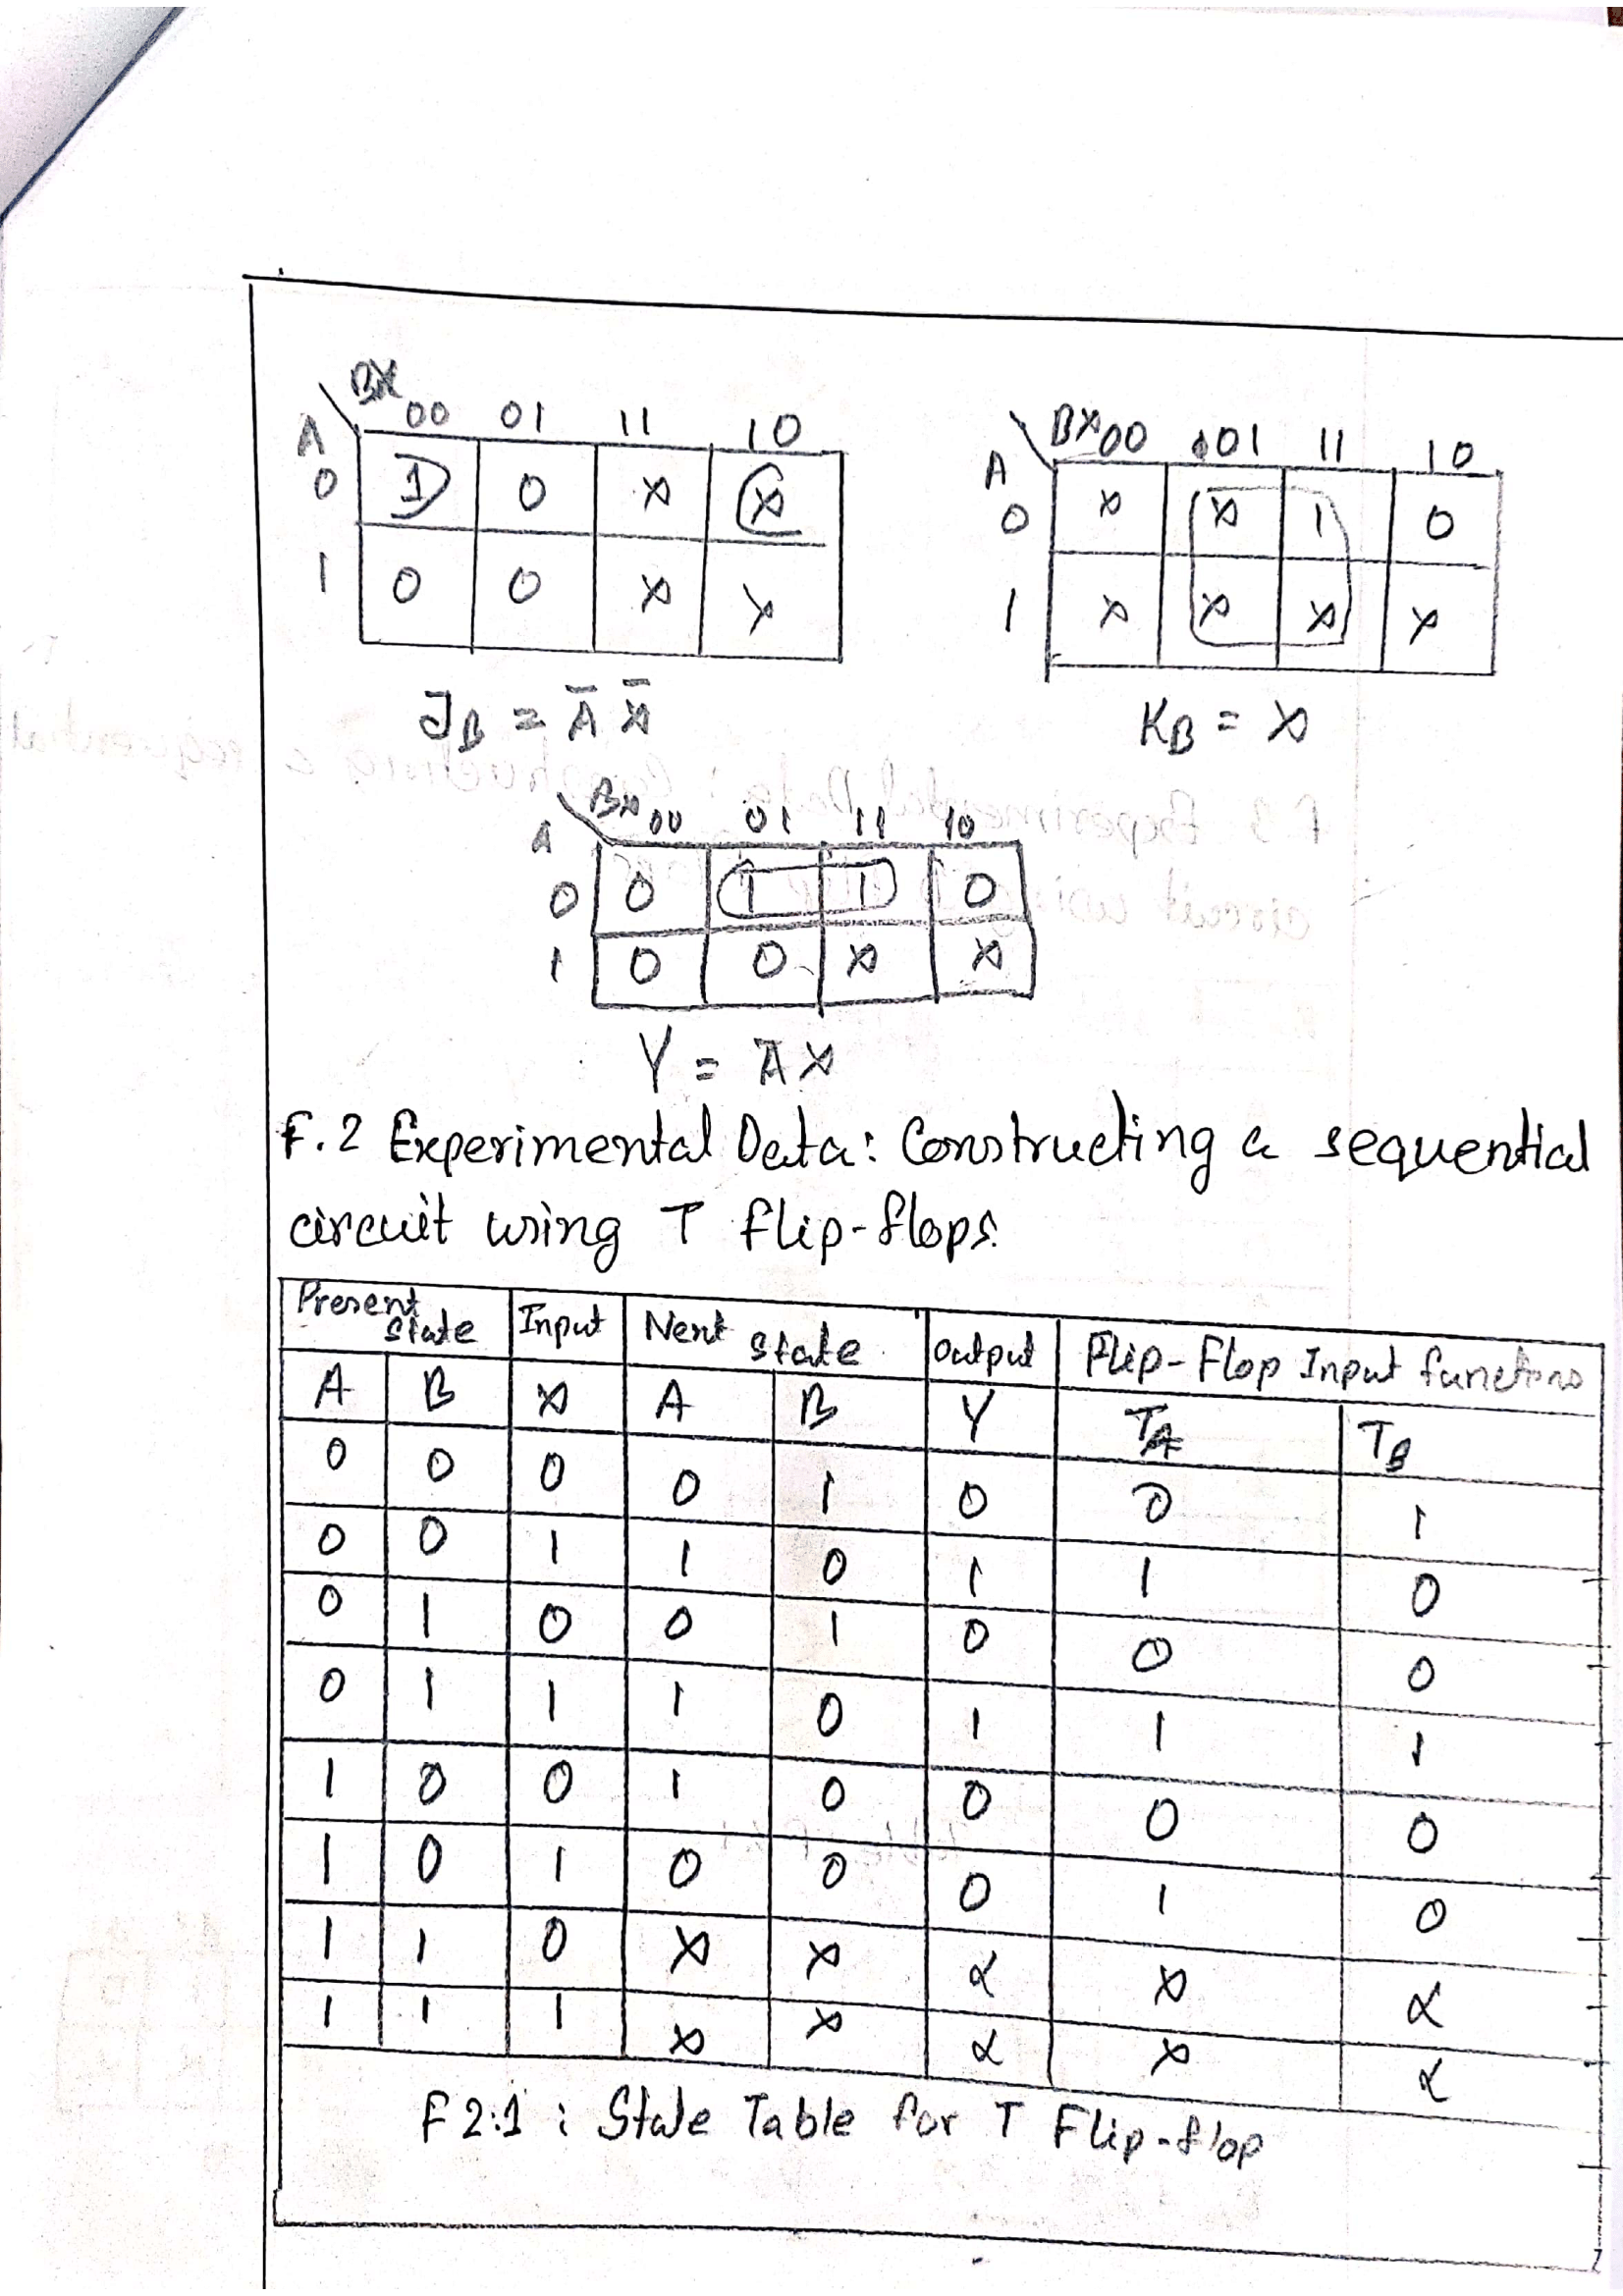 BX 00 01 11 10
A
0 1 0 x x
1 0 0 x x
J_B = Ā X̄
BX 00 01 11 10
A
0 x x 1 0
1 x x x x
K_B = X
BX 00 01 11 10
A
0 0 1 1 0
1 0 0 x x
Y = ĀX
F.2 Experimental Data: Constructing a sequential
circuit using T flip-flops.
Present State Input Next state Output Flip-Flop Input functions
A B X A B Y T_A T_B
0 0 0 0 1 0 0 1
0 0 1 1 0 1 1 0
0 1 0 0 1 0 0 0
0 1 1 1 0 1 1 1
1 0 0 1 0 0 0 0
1 0 1 0 0 0 1 0
1 1 0 x x x x x
1 1 1 x x x x x
F 2.1 : State Table for T Flip-flop